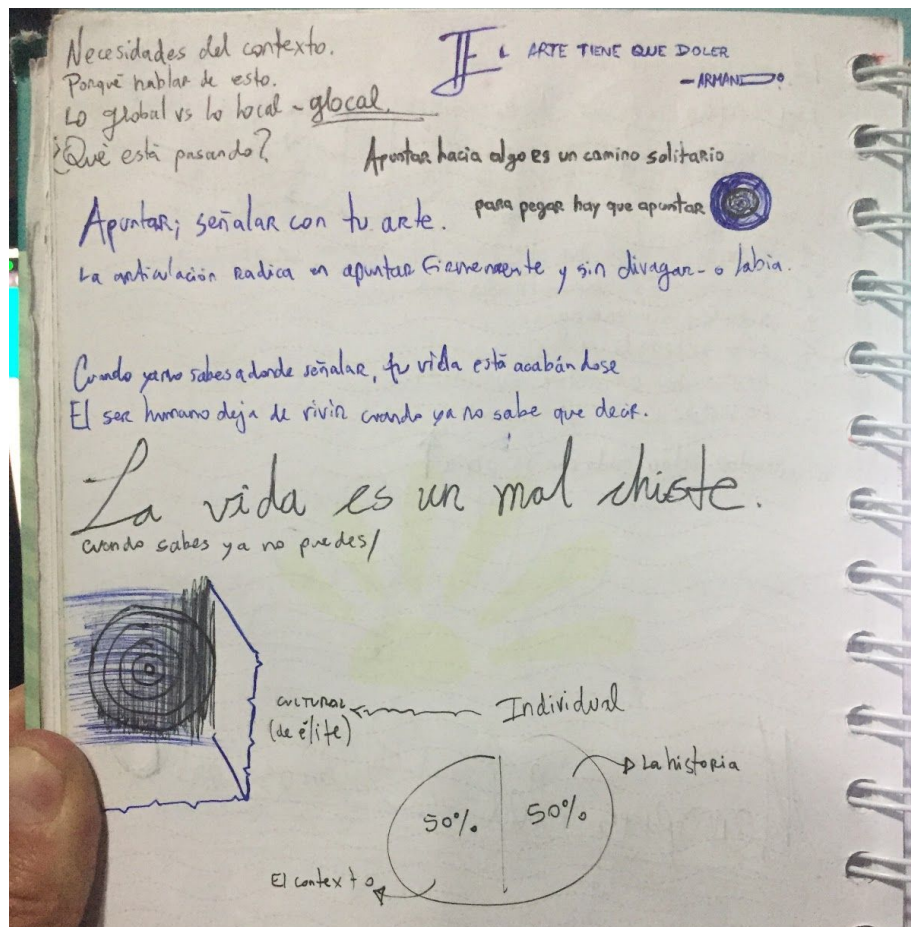 Necesidades del contexto.
Porqué hablar de esto.
Lo global vs lo local - glocal.
¿Qué está pasando?
EL ARTE TIENE QUE DOLER
- ARMANDO.
Apuntar hacia algo es un camino solitario
para pegar hay que apuntar
Apuntar; señalar con tu arte.
La articulación radica en apuntar firmemente y sin divagar - o labia.
Cuando ya no sabes a donde señalar, tu vida está acabándose
El ser humano deja de vivir cuando ya no sabe que decir.
La vida es un mal chiste.
cuando sabes ya no puedes/
CULTURAL
(de élite)
Individual
La historia
50%
50%
El contexto